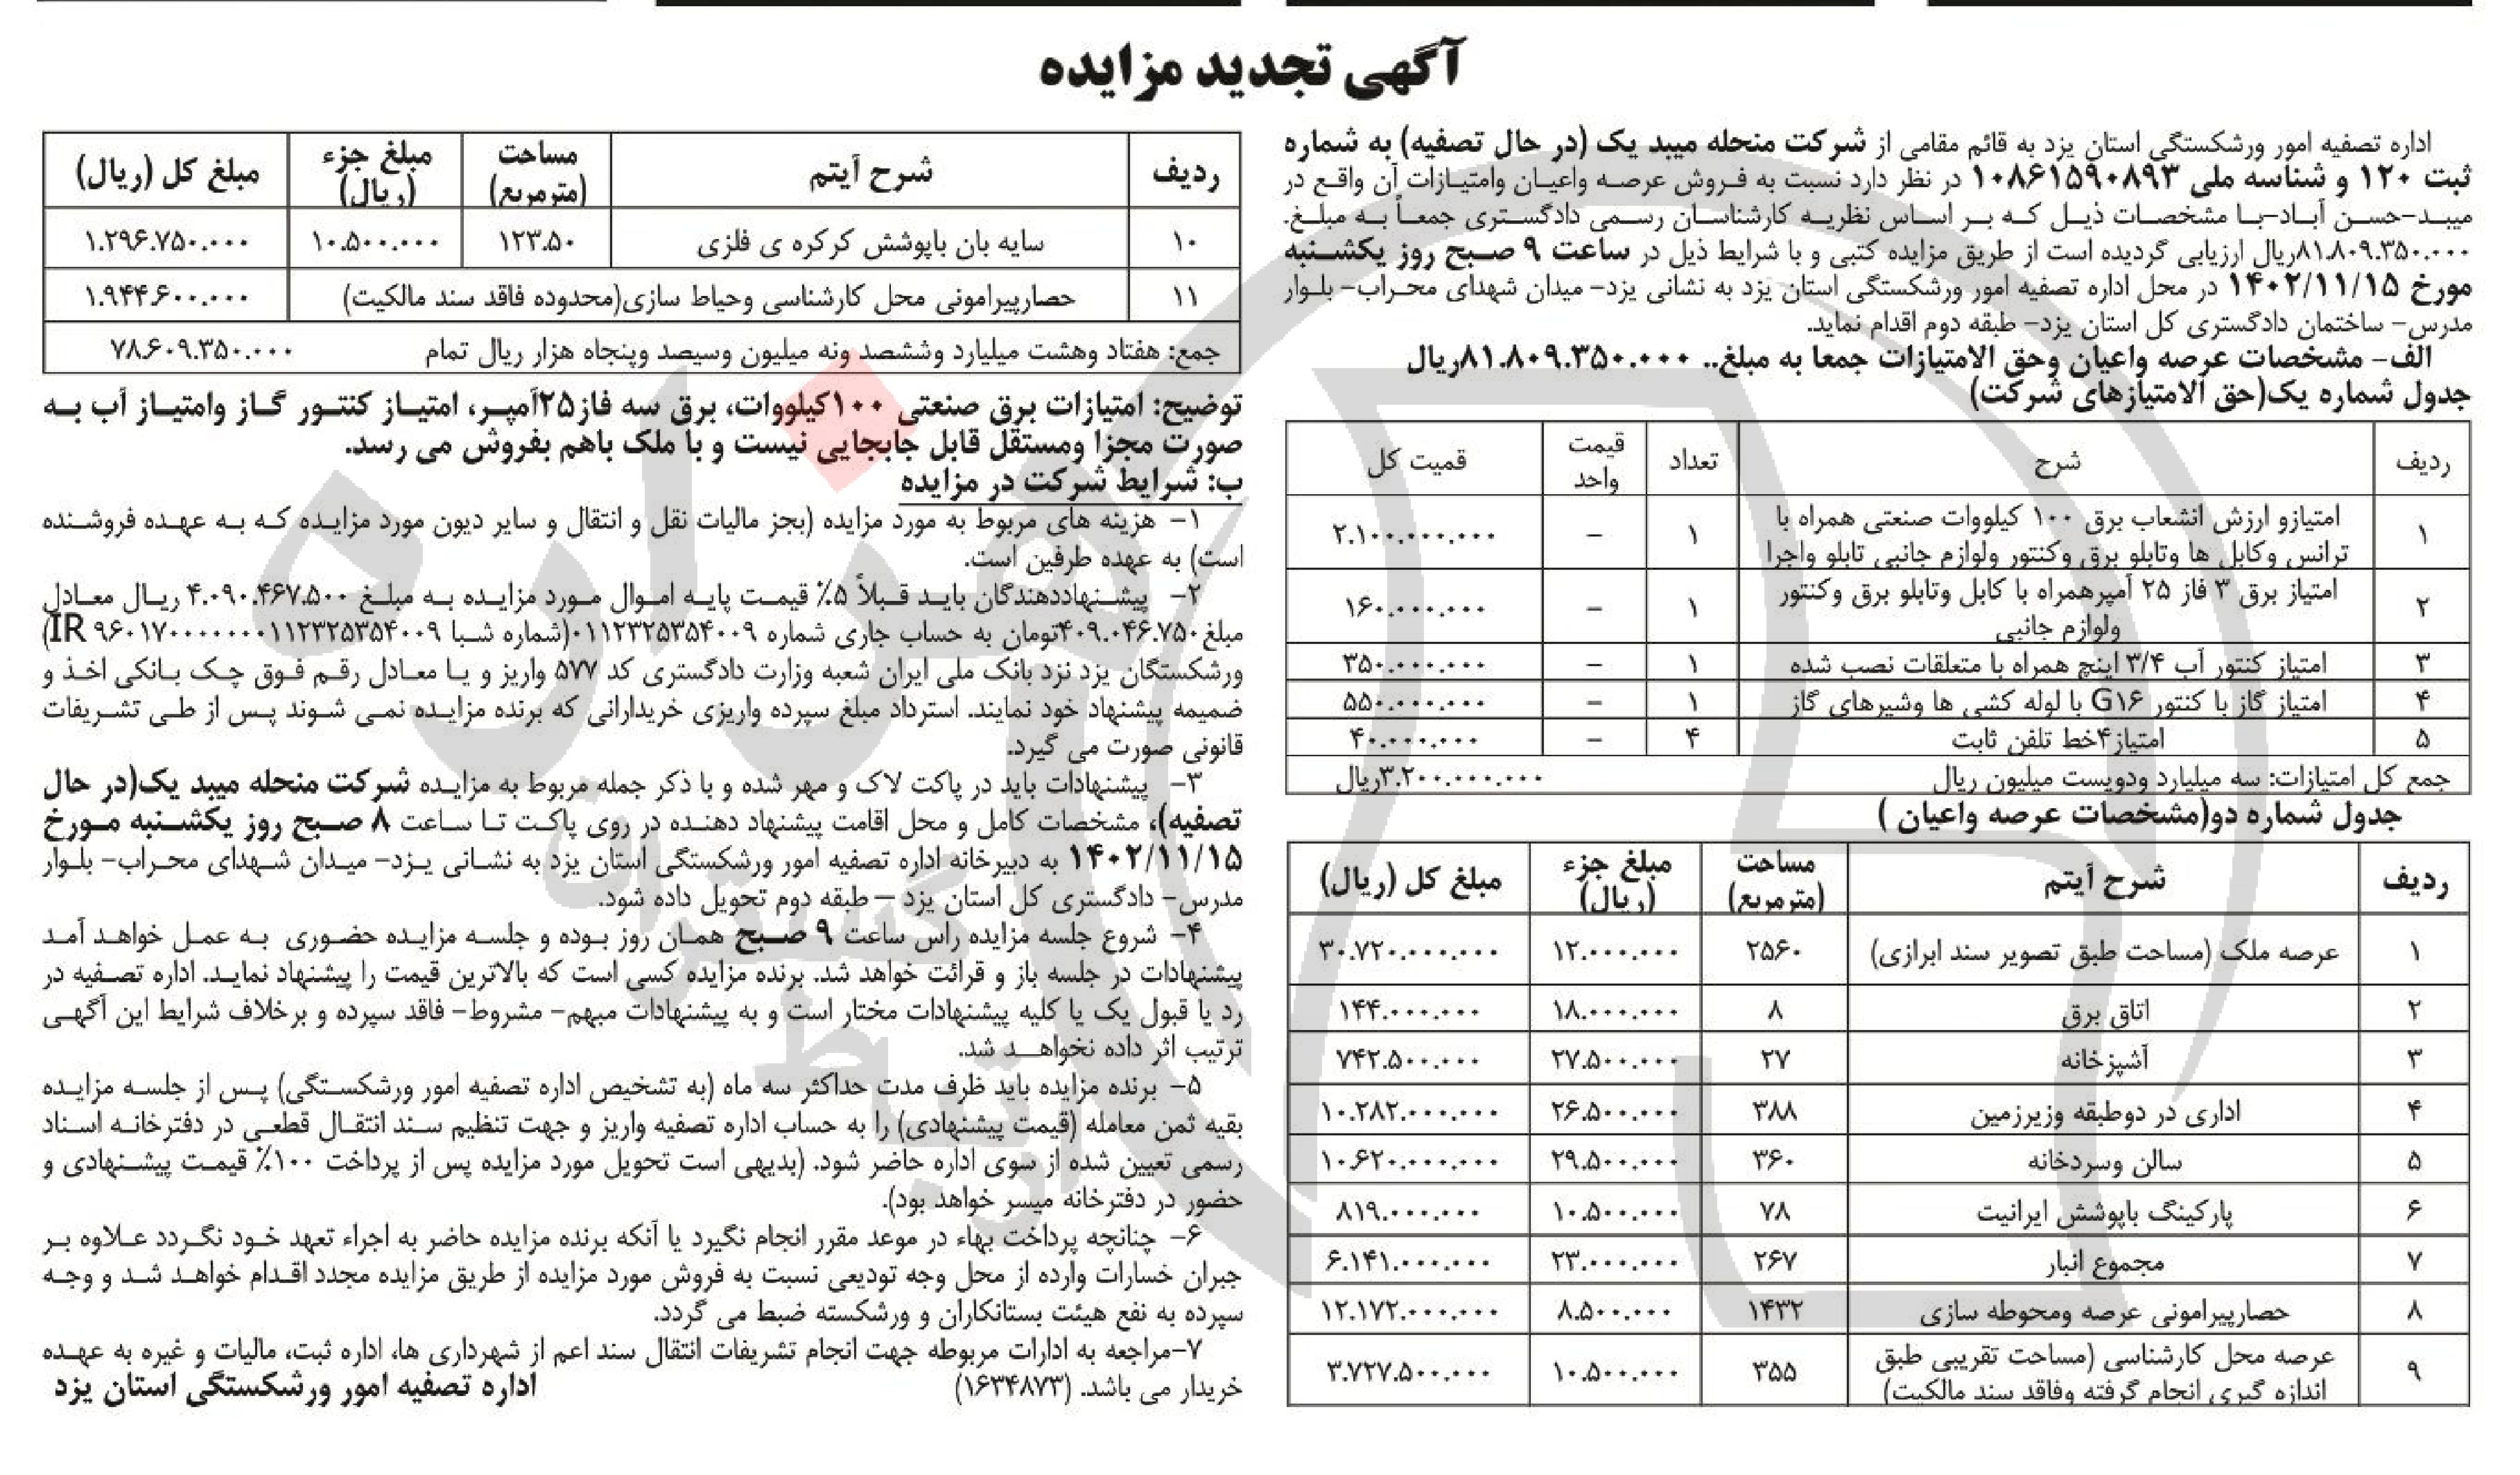 آگهی تجدید مزایده
اداره تصفیه امور ورشکستگی استان یزد به قائم مقامی از شرکت منحله میبد یک (در حال تصفیه) به شماره
ثبت ۱۲۰ و شناسه ملی ۱۰۸۶۱۵۹۰۸۹۳ در نظر دارد نسبت به فروش عرصه واعیان وامتیازات آن واقع در
میبد-حسن آباد-با مشخصات ذیل که بر اساس نظریه کارشناسان رسمی دادگستری جمعاً به مبلغ.
۸۱.۸۰۹.۳۵۰.۰۰۰ریال ارزیابی گردیده است از طریق مزایده کتبی و با شرایط ذیل در ساعت ۹ صبح روز یکشنبه
مورخ ۱۴۰۲/۱۱/۱۵ در محل اداره تصفیه امور ورشکستگی استان یزد به نشانی یزد- میدان شهدای محراب- بلوار
مدرس- ساختمان دادگستری کل استان یزد- طبقه دوم اقدام نماید.
الف- مشخصات عرصه واعیان وحق الامتیازات جمعا به مبلغ.. ۸۱.۸۰۹.۳۵۰.۰۰۰ریال
جدول شماره یک(حق الامتیازهای شرکت)
ردیف شرح تعداد قیمت واحد قمیت کل
۱ امتیازو ارزش انشعاب برق ۱۰۰ کیلووات صنعتی همراه با ۱ – ۲.۱۰۰.۰۰۰.۰۰۰
ترانس وکابل ها وتابلو برق وکنتور ولوازم جانبی تابلو واجرا
۲ امتیاز برق ۳ فاز ۲۵ آمپرهمراه با کابل وتابلو برق وکنتور ۱ – ۱۶۰.۰۰۰.۰۰۰
ولوازم جانبی
۳ امتیاز کنتور آب ۳/۴ اینچ همراه با متعلقات نصب شده ۱ – ۳۵۰.۰۰۰.۰۰۰
۴ امتیاز گاز با کنتور G۱۶ با لوله کشی ها وشیرهای گاز ۱ – ۵۵۰.۰۰۰.۰۰۰
۵ امتیاز۴خط تلفن ثابت ۴ – ۴۰.۰۰۰.۰۰۰
جمع کل امتیازات: سه میلیارد ودویست میلیون ریال ۳.۲۰۰.۰۰۰.۰۰۰ریال
جدول شماره دو(مشخصات عرصه واعیان )
ردیف شرح آیتم مساحت (مترمربع) مبلغ جزء (ریال) مبلغ کل (ریال)
۱ عرصه ملک (مساحت طبق تصویر سند ابرازی) ۲۵۶۰ ۱۲.۰۰۰.۰۰۰ ۳۰.۷۲۰.۰۰۰.۰۰۰
۲ اتاق برق ۸ ۱۸.۰۰۰.۰۰۰ ۱۴۴.۰۰۰.۰۰۰
۳ آشپزخانه ۲۷ ۲۷.۵۰۰.۰۰۰ ۷۴۲.۵۰۰.۰۰۰
۴ اداری در دوطبقه وزیرزمین ۳۸۸ ۲۶.۵۰۰.۰۰۰ ۱۰.۲۸۲.۰۰۰.۰۰۰
۵ سالن وسردخانه ۳۶۰ ۲۹.۵۰۰.۰۰۰ ۱۰.۶۲۰.۰۰۰.۰۰۰
۶ پارکینگ باپوشش ایرانیت ۷۸ ۱۰.۵۰۰.۰۰۰ ۸۱۹.۰۰۰.۰۰۰
۷ مجموع انبار ۲۶۷ ۲۳.۰۰۰.۰۰۰ ۶.۱۴۱.۰۰۰.۰۰۰
۸ حصارپیرامونی عرصه ومحوطه سازی ۱۴۳۲ ۸.۵۰۰.۰۰۰ ۱۲.۱۷۲.۰۰۰.۰۰۰
۹ عرصه محل کارشناسی (مساحت تقریبی طبق ۳۵۵ ۱۰.۵۰۰.۰۰۰ ۳.۷۲۷.۵۰۰.۰۰۰
اندازه گیری انجام گرفته وفاقد سند مالکیت)
ردیف شرح آیتم مساحت (مترمربع) مبلغ جزء (ریال) مبلغ کل (ریال)
۱۰ سایه بان باپوشش کرکره ی فلزی ۱۲۳.۵۰ ۱۰.۵۰۰.۰۰۰ ۱.۲۹۶.۷۵۰.۰۰۰
۱۱ حصارپیرامونی محل کارشناسی وحیاط سازی(محدوده فاقد سند مالکیت) ۱.۹۴۴.۶۰۰.۰۰۰
جمع: هفتاد وهشت میلیارد وششصد ونه میلیون وسیصد وپنجاه هزار ریال تمام ۷۸.۶۰۹.۳۵۰.۰۰۰
توضیح: امتیازات برق صنعتی ۱۰۰کیلووات، برق سه فاز۲۵آمپر، امتیاز کنتور گاز وامتیاز آب به
صورت مجزا ومستقل قابل جابجایی نیست و با ملک باهم بفروش می رسد.
ب: شرایط شرکت در مزایده
۱- هزینه های مربوط به مورد مزایده (بجز مالیات نقل و انتقال و سایر دیون مورد مزایده که به عهده فروشنده
است) به عهده طرفین است.
۲- پیشنهاددهندگان باید قبلاً ۵٪ قیمت پایه اموال مورد مزایده به مبلغ ۴.۰۹۰.۴۶۷.۵۰۰ ریال معادل
مبلغ۴۰۹.۰۴۶.۷۵۰تومان به حساب جاری شماره ۰۱۱۲۳۲۵۳۵۴۰۰۹(شماره شبا IR ۹۶۰۱۷۰۰۰۰۰۰۰۰۱۱۲۳۲۵۳۵۴۰۰۹)
ورشکستگان یزد نزد بانک ملی ایران شعبه وزارت دادگستری کد ۵۷۷ واریز و یا معادل رقم فوق چک بانکی اخذ و
ضمیمه پیشنهاد خود نمایند. استرداد مبلغ سپرده واریزی خریدارانی که برنده مزایده نمی شوند پس از طی تشریفات
قانونی صورت می گیرد.
۳- پیشنهادات باید در پاکت لاک و مهر شده و با ذکر جمله مربوط به مزایده شرکت منحله میبد یک(در حال
تصفیه)، مشخصات کامل و محل اقامت پیشنهاد دهنده در روی پاکت تا ساعت ۸ صبح روز یکشنبه مورخ
۱۴۰۲/۱۱/۱۵ به دبیرخانه اداره تصفیه امور ورشکستگی استان یزد به نشانی یزد- میدان شهدای محراب- بلوار
مدرس- دادگستری کل استان یزد – طبقه دوم تحویل داده شود.
۴- شروع جلسه مزایده راس ساعت ۹ صبح همان روز بوده و جلسه مزایده حضوری به عمل خواهد آمد
پیشنهادات در جلسه باز و قرائت خواهد شد. برنده مزایده کسی است که بالاترین قیمت را پیشنهاد نماید. اداره تصفیه در
رد یا قبول یک یا کلیه پیشنهادات مختار است و به پیشنهادات مبهم- مشروط- فاقد سپرده و برخلاف شرایط این آگهی
ترتیب اثر داده نخواهد شد.
۵- برنده مزایده باید ظرف مدت حداکثر سه ماه (به تشخیص اداره تصفیه امور ورشکستگی) پس از جلسه مزایده
بقیه ثمن معامله (قیمت پیشنهادی) را به حساب اداره تصفیه واریز و جهت تنظیم سند انتقال قطعی در دفترخانه اسناد
رسمی تعیین شده از سوی اداره حاضر شود. (بدیهی است تحویل مورد مزایده پس از پرداخت ۱۰۰٪ قیمت پیشنهادی و
حضور در دفترخانه میسر خواهد بود).
۶- چنانچه پرداخت بهاء در موعد مقرر انجام نگیرد یا آنکه برنده مزایده حاضر به اجراء تعهد خود نگردد علاوه بر
جبران خسارات وارده از محل وجه تودیعی نسبت به فروش مورد مزایده از طریق مزایده مجدد اقدام خواهد شد و وجه
سپرده به نفع هیئت بستانکاران و ورشکسته ضبط می گردد.
۷-مراجعه به ادارات مربوطه جهت انجام تشریفات انتقال سند اعم از شهرداری ها، اداره ثبت، مالیات و غیره به عهده
خریدار می باشد. (۱۶۳۴۸۷۳)
اداره تصفیه امور ورشکستگی استان یزد